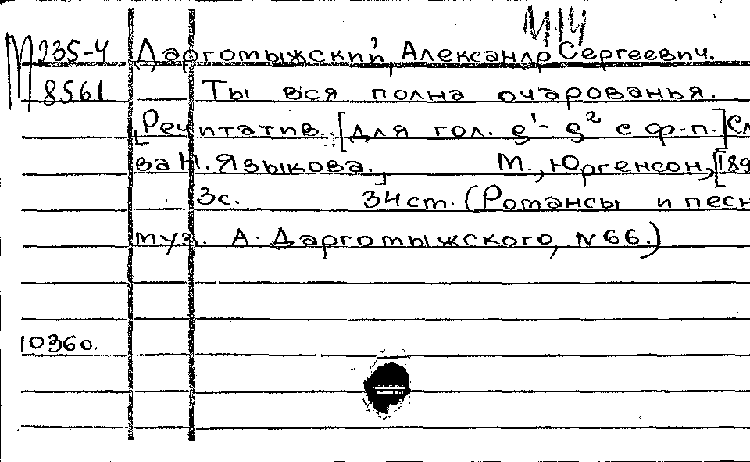 М14
М 235-4 Даргомыжский, Александр Сергеевич.
8561 Ты вся полна очарованья.
[Речитатив. [для гол. g¹-g² с ф-п. Сл
ва Н. Языкова.] М., Юргенсон, [189
3с. 34cm. (Романсы и песн
муз. А. Даргомыжского, N66.)
10360.